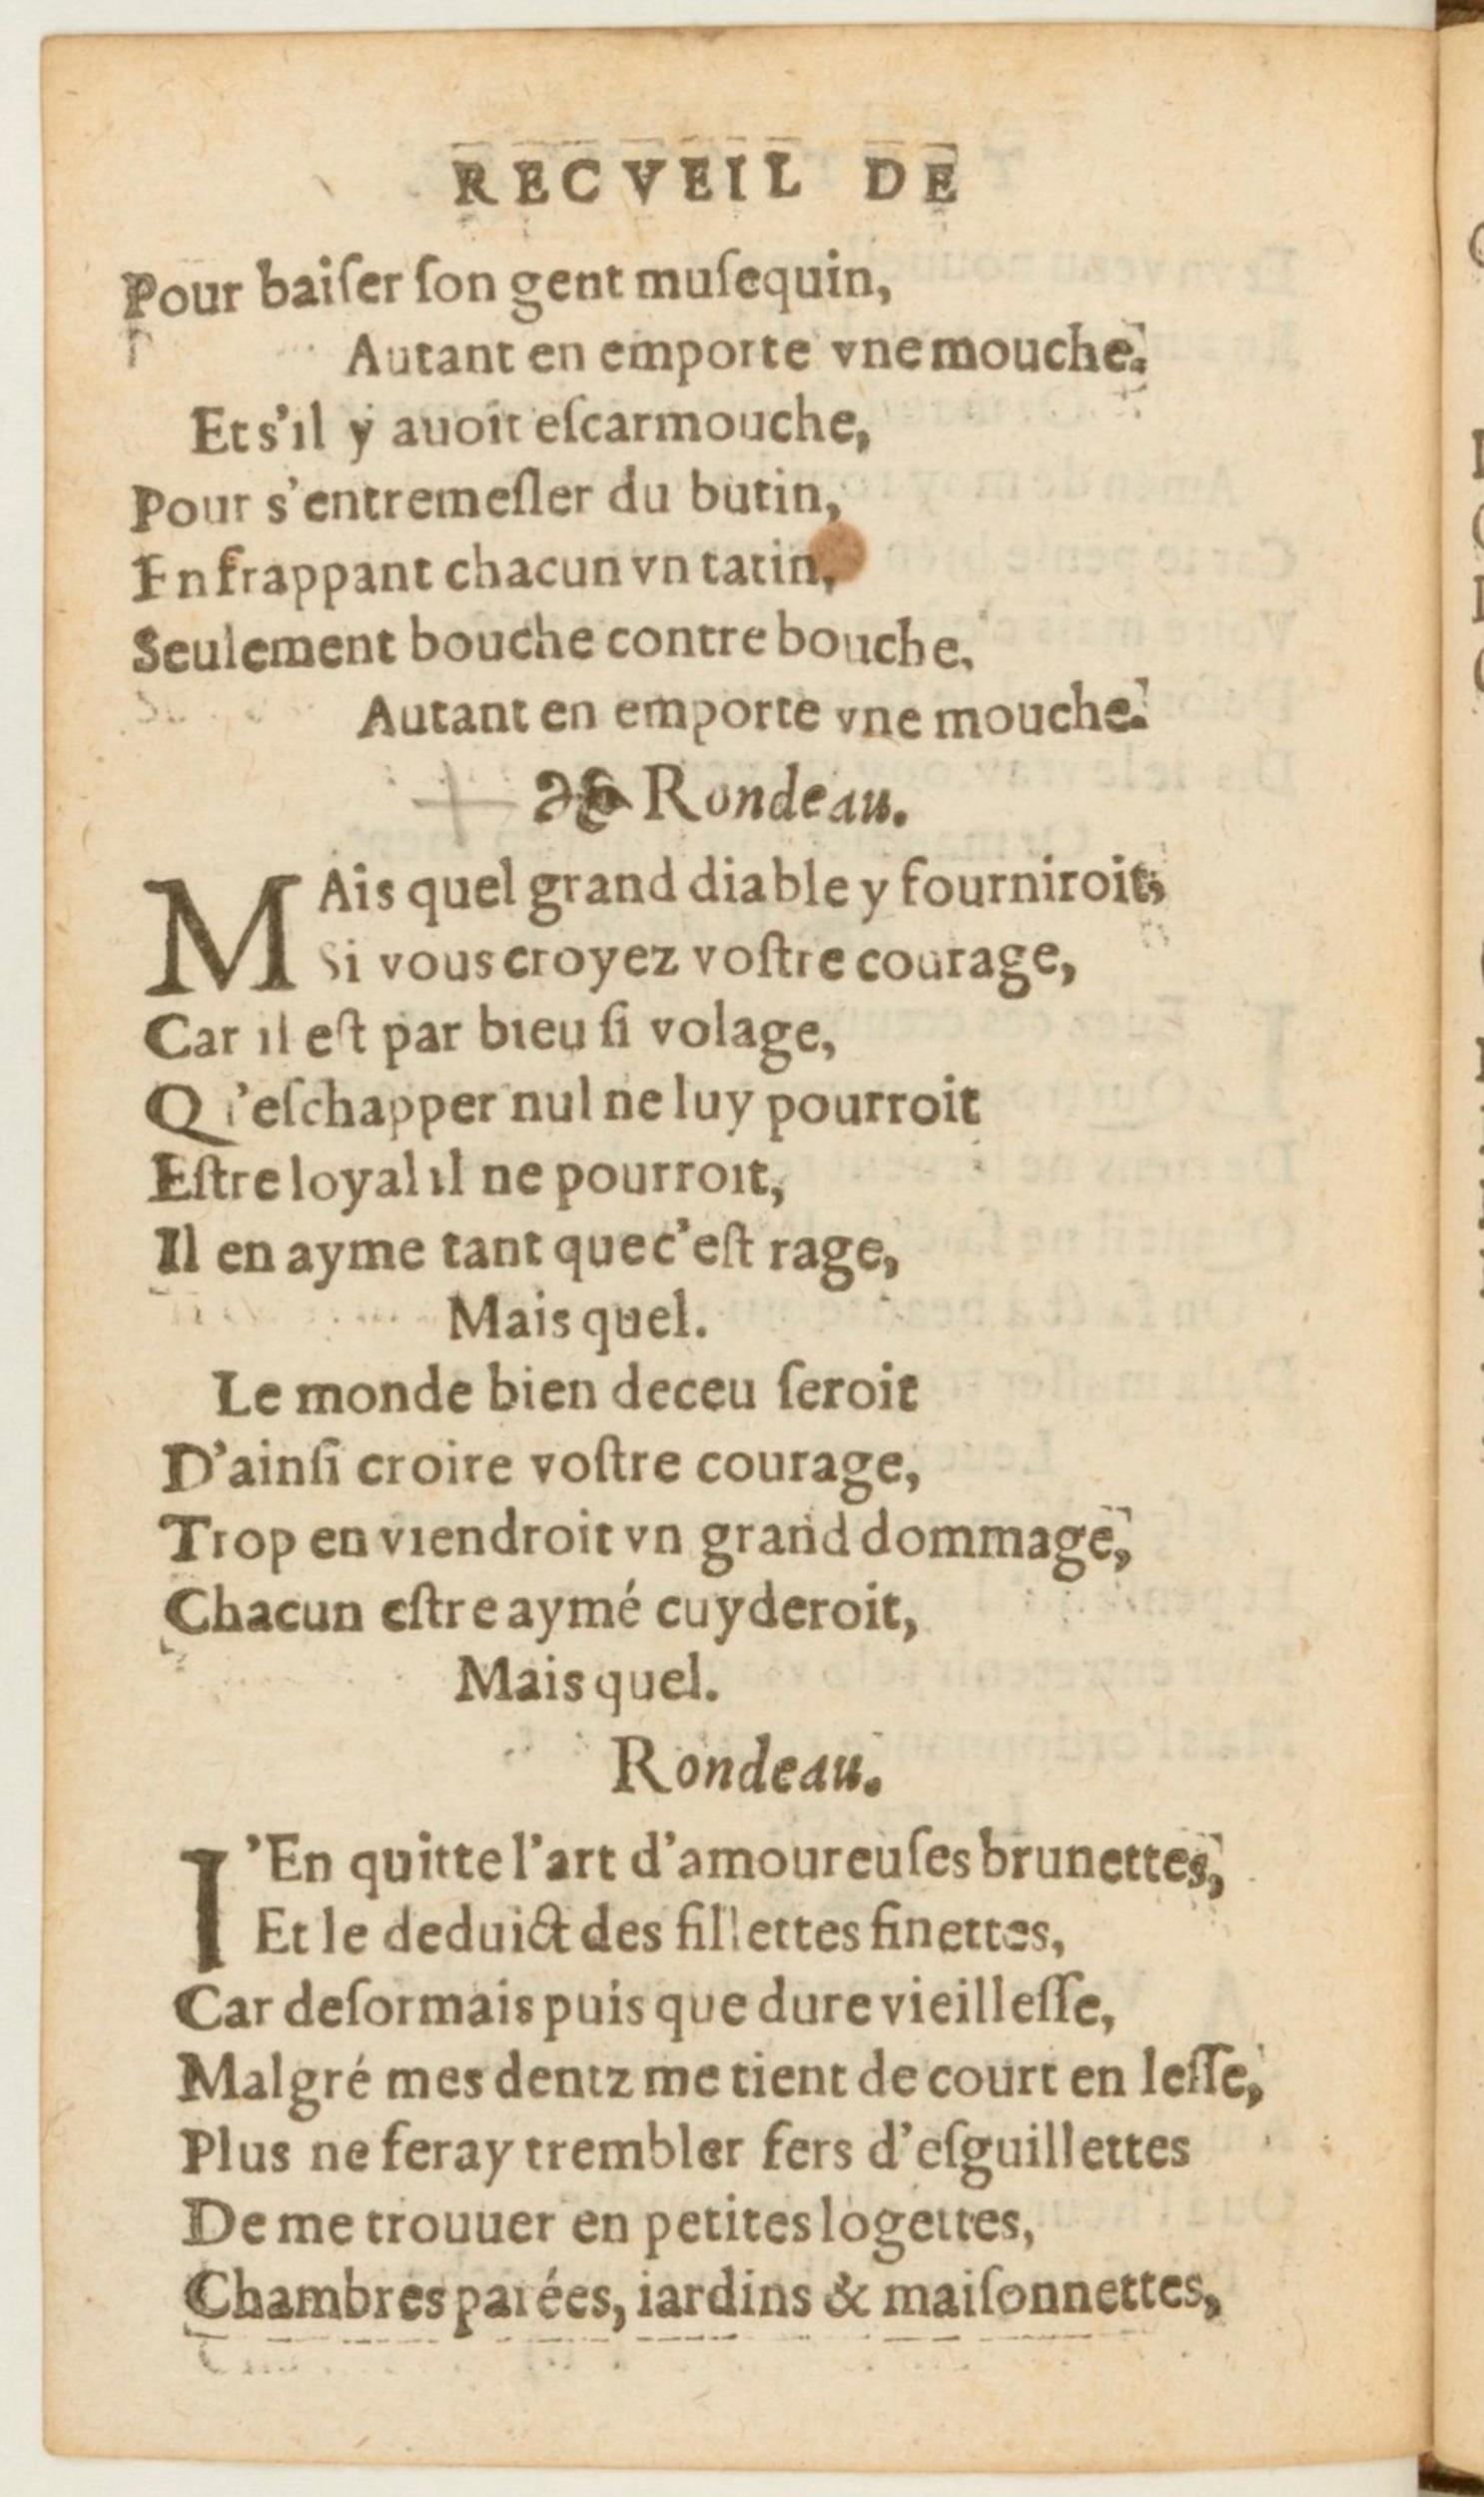 RECVEIL DE
Pour baiſer ſon gent muſequin,
Autant en emporte vne mouche.
Et s'il y auoit eſcarmouche,
Pour s'entremeſler du butin,
En frappant chacun vn tatin,
Seulement bouche contre bouche,
Autant en emporte vne mouche.
Rondeau.
MAis quel grand diable y fourniroit,
Si vous croyez voſtre courage,
Car il eſt par bieu ſi volage,
Qu'eſchapper nul ne luy pourroit
Eſtre loyal il ne pourroit,
Il en ayme tant que c'eſt rage,
Mais quel.
Le monde bien deceu ſeroit
D'ainſi croire voſtre courage,
Trop en viendroit vn grand dommage,
Chacun eſtre aymé cuyderoit,
Mais quel.
Rondeau.
I'En quitte l'art d'amoureuſes brunettes,
Et le deduict des fillettes finettes,
Car deſormais puis que dure vieilleſſe,
Malgré mes dentz me tient de court en leſſe,
Plus ne feray trembler fers d'eſguillettes
De me trouuer en petites logettes,
Chambres parées, iardins & maiſonnettes,